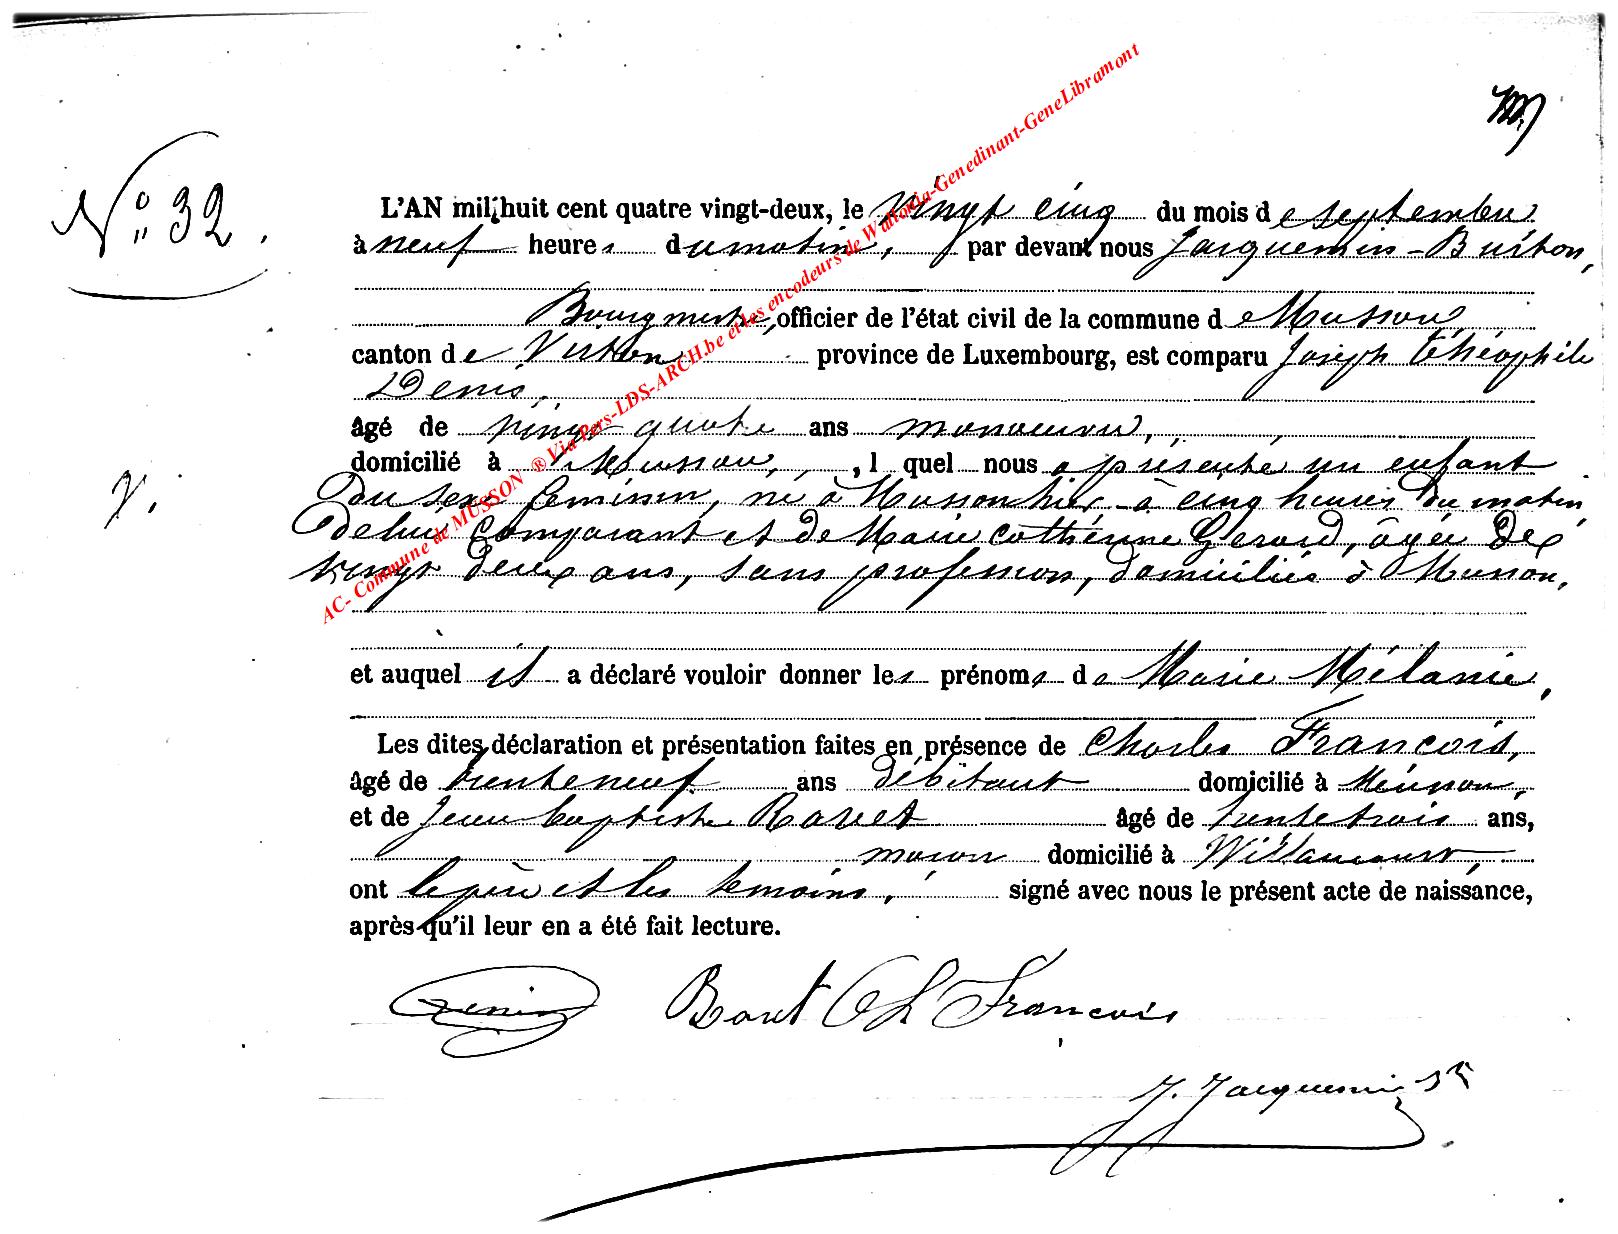 N° 32.
L'AN mil huit cent quatre vingt-deux, le vingt cinq du mois de septembre
à neuf heures du matin, par devant nous Jacquemin-Burton,
Bourgmestre, officier de l'état civil de la commune de Musson
canton de Virton province de Luxembourg, est comparu Joseph Théophile
Denis,
âgé de vingt quatre ans manoeuvre,
domicilié à Musson, lquel nous a présenté un enfant
du sexe féminin, né à Musson hier à cinq heures du matin,
de lui comparant et de Marie Catherine Gerard, âgée de
vingt deux ans, sans profession, domiciliés à Musson,
et auquel il a déclaré vouloir donner les prénoms de Marie Mélanie,
Les dites déclaration et présentation faites en présence de Charles François,
âgé de trente neuf ans débitant domicilié à Musson,
et de Jean baptiste Ravet âgé de trente trois ans,
maçon domicilié à Willancourt,
ont le père et les témoins, signé avec nous le présent acte de naissance,
après qu'il leur en a été fait lecture.
Denis Ch François
J. Jacquemin
AC- Commune de MUSSON ® Via Pers-LDS-ARCH.be et les encodeurs de Wallonia-Genedinant-GeneLibramont